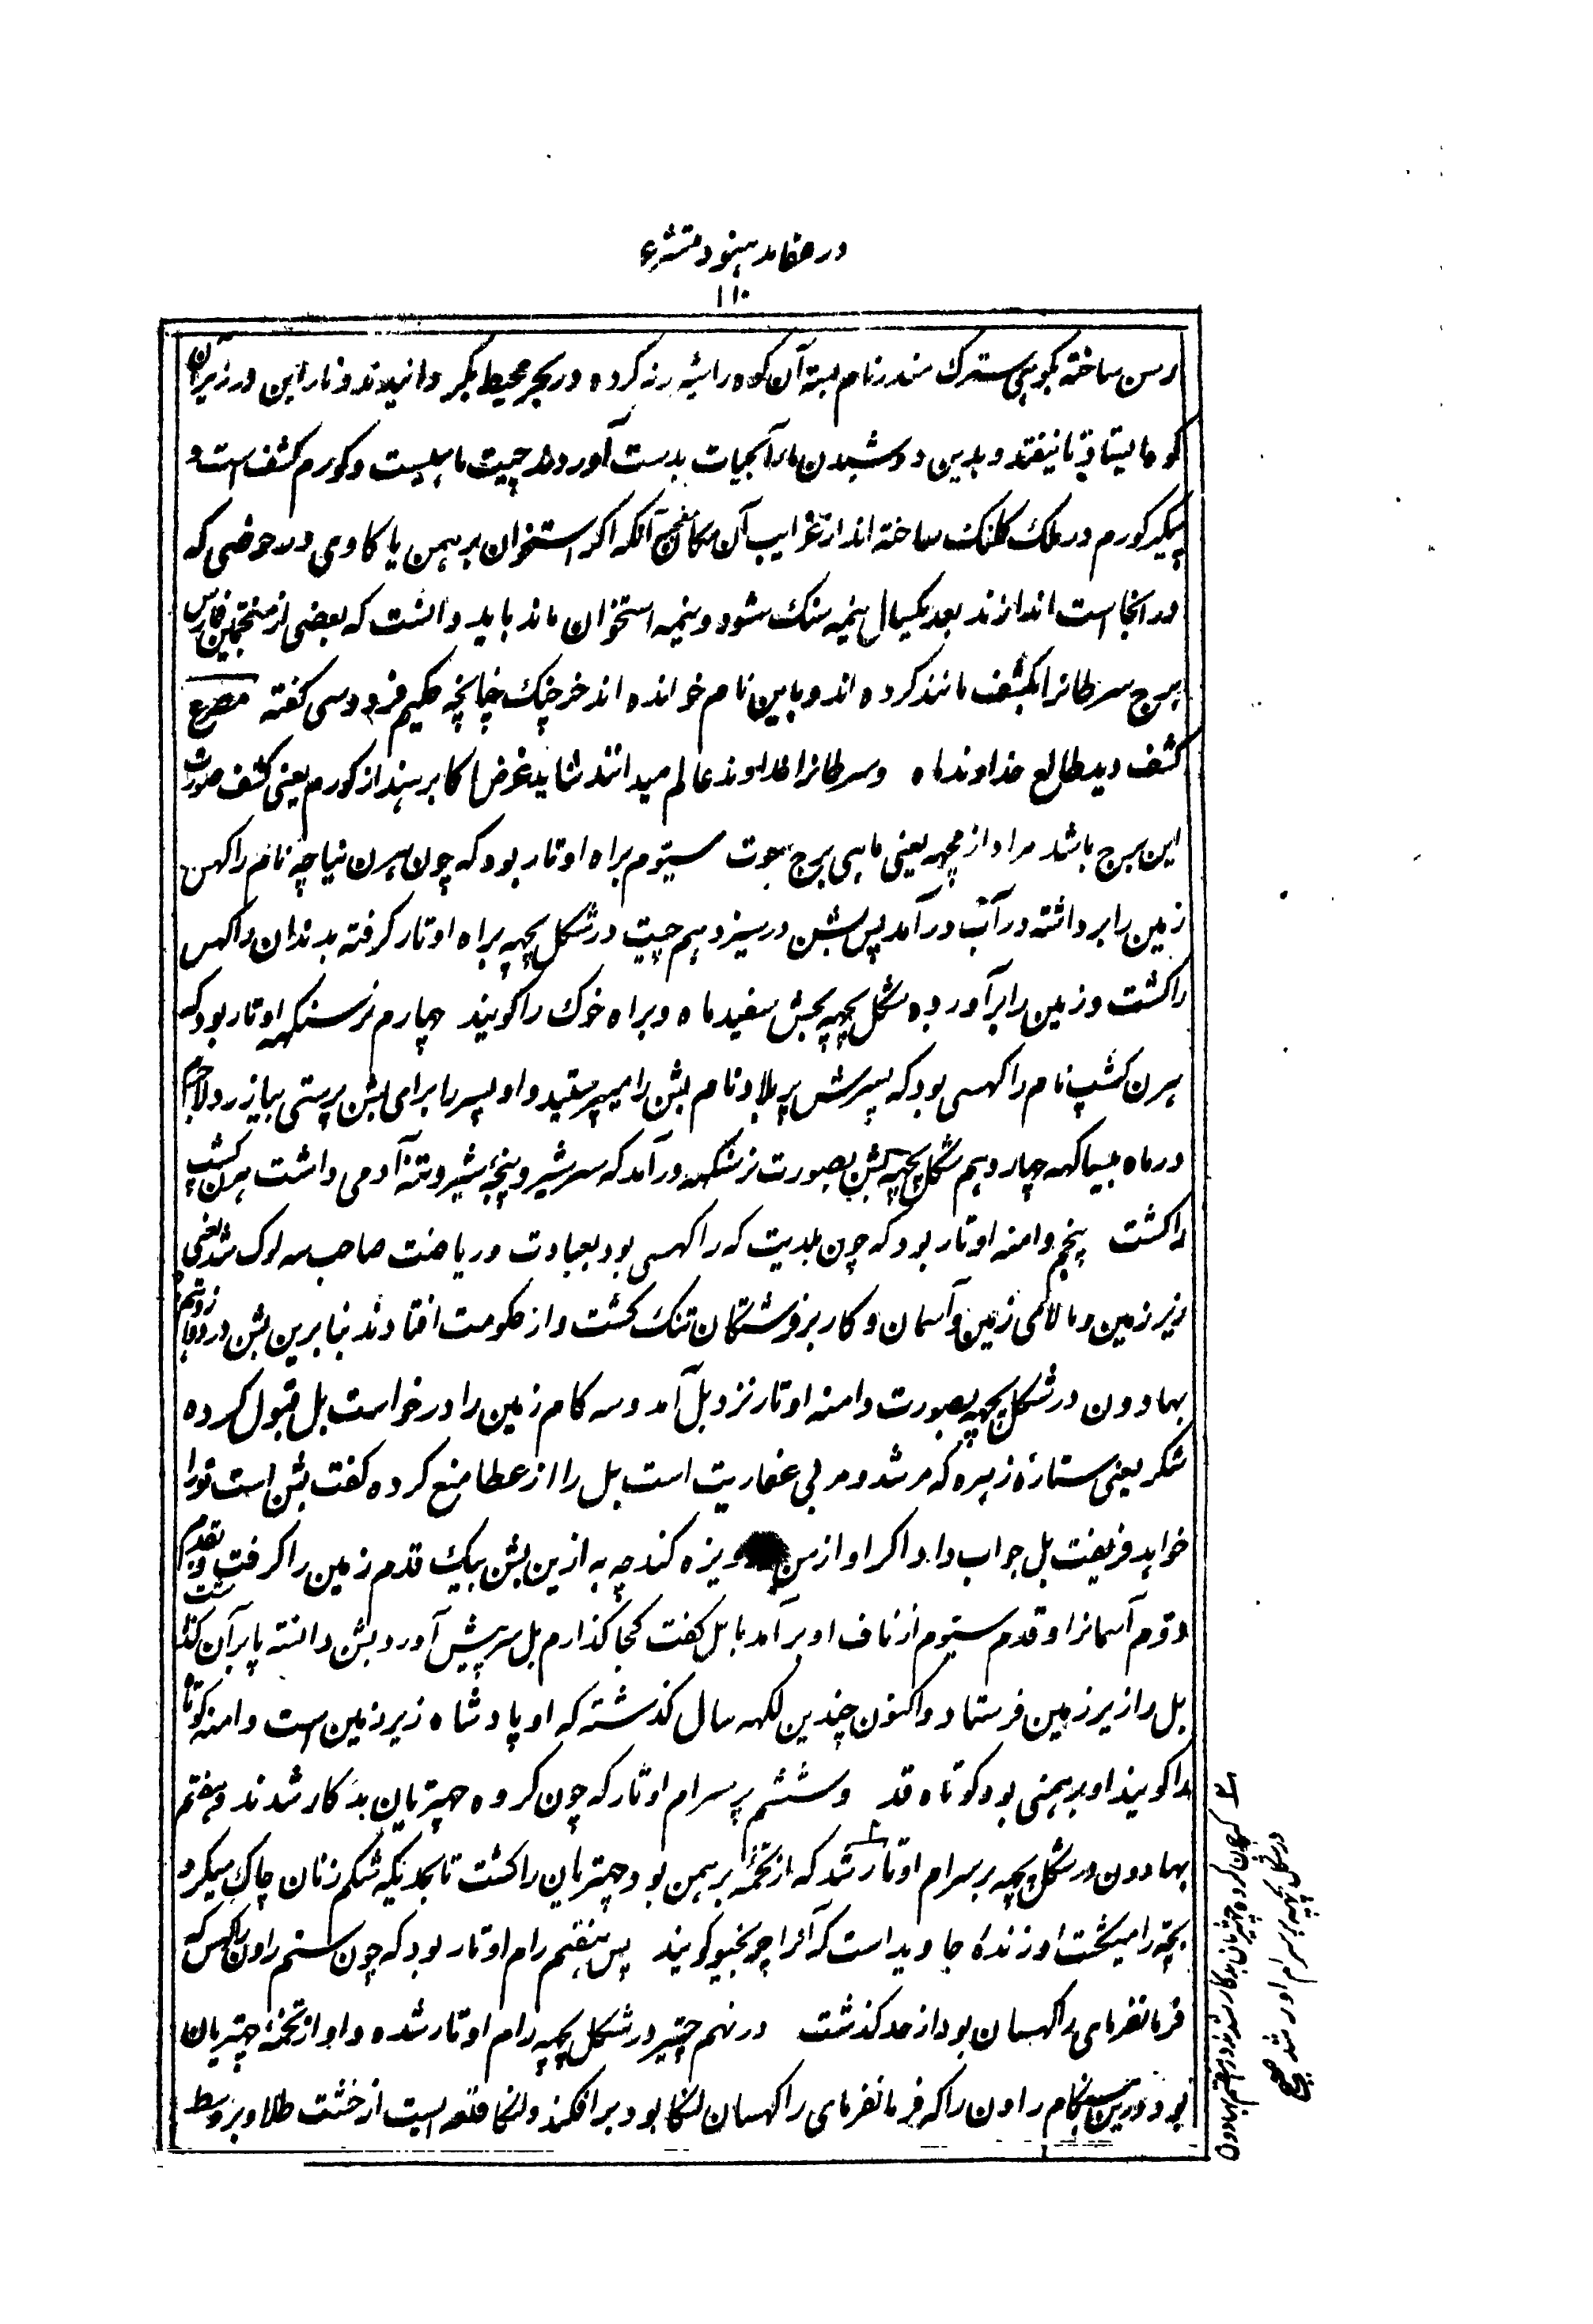 در عقاید هنود متشرع
۱۱۰
رسن ساخته بکوهی سترک مندر نام بسته آن کوه را شیرزنه کرده در بحر محیط بگردانیدند و ناراین در زیر آن
کوه بایستاد تا نیفتد و بدین دوشیدن مار آبحیات بدست آوردند چیت ماهیست و کورم کشف است و
پیکر کورم در ملک کلنک ساخته اند از غرایب آن مکان آنکه اگر استخوان برهمن یا کاوی در حوضی که
در انجا است اندازند بعد یکسال نیمه سنک شود و نیمه استخوان ماند باید دانست که بعضی از منجمین فارس
برج سرطانرا بکشف مانند کرده اند و باین نام خوانده اند خرچنک چنانچه حکیم فردوسی کفته مصرع
کشف دید طالع خداوند ماه و سرطانرا خداوند عالم میدانند شاید غرض اکابر هند از کورم یعنی کشف صورت
این برج باشد مراد از مچهه یعنی ماهی برج حوت سیوم براه اوتار بود که چون هرن نیاچه نام راکهس
زمین را برداشته در آب در آمد پس بشن در سیزدهم چیت در شکل پچهه براه اوتار کرفته بدندان راکهس
را کشت و زمین را برآورده شکل پچهه بخش سفید ماه و براه خوک را کویند چهارم نرسنکهه اوتار بود که
هرن کشپ نام راکهسی بود که پسرش پرهلاد نام بشن را میپرستید و او پسر را برای بشن پرستی بیازرد لاجرم
در ماه بیساکهه چهاردهم شکل پچهه بشن بصورت نرسنکهه در آمد که سر شیر و پنجه شیر و تنه آدمی داشت هرن کشپ
را کشت پنجم وامنه اوتار بود که چون بلدیت که راکهسی بود بعبادت و ریاضت صاحب سه لوک شد یعنی
زیر زمین و بالای زمین و آسمان و کار بر فرشتکان تنک کشت و از حکومت افتادند بنابرین بشن در دوازدهم
بهادون در شکل پچهه بصورت وامنه اوتار نزد بل آمد و سه کام زمین را درخواست بل قبول کرده
شکر یعنی ستاره زهره که مرشد و مربی عفاریت است بل را از عطا منع کرده کفت بشن است تو را
خواهد فریفت بل جواب داد اکر او از من دریوزه کند چه به ازین بشن بیک قدم زمین را کرفت و بقدم
دوم آسمانرا و قدم سیوم از ناف او بر آمد با بل کفت کجا کذارم بل سر پیش آورد بشن دانسته پا بر آن کذاشت
بل را زیر زمین فرستاد و اکنون چندین لکهه سال کذشته که او پادشاه زیر زمین است وامنه کوتاه
را کویند او برهمنی بود کوتاه قد و ششم پرسرام اوتار که چون کروه چهتریان بدکار شدند هفتم
بهادون در شکل پچهه پرسرام اوتار شد که از تخمه برهمن بود چهتریان را کشت تا بحدیکه شکم زنان چاک میکرد
بچه را میکشت او زنده جاوید است که آنرا چرنجیو کویند پس هفتم رام اوتار بود که چون ستم راون راکهس که
فرمانفرمای راکهسان بود از حد کذشت در نهم چیتر در شکل پچهه رام اوتار شده و او از تخمه چهتریان
بود درین هنکام راون را که فرمانفرمای راکهسان لنکا بود برافکند و لنکا قلعه ایست از خشت طلا و بر وسط
که چون کروه چهتریان بدکار شدند در هفتم بهادون
در شکل پچهه پرسرام اوتار شد صح